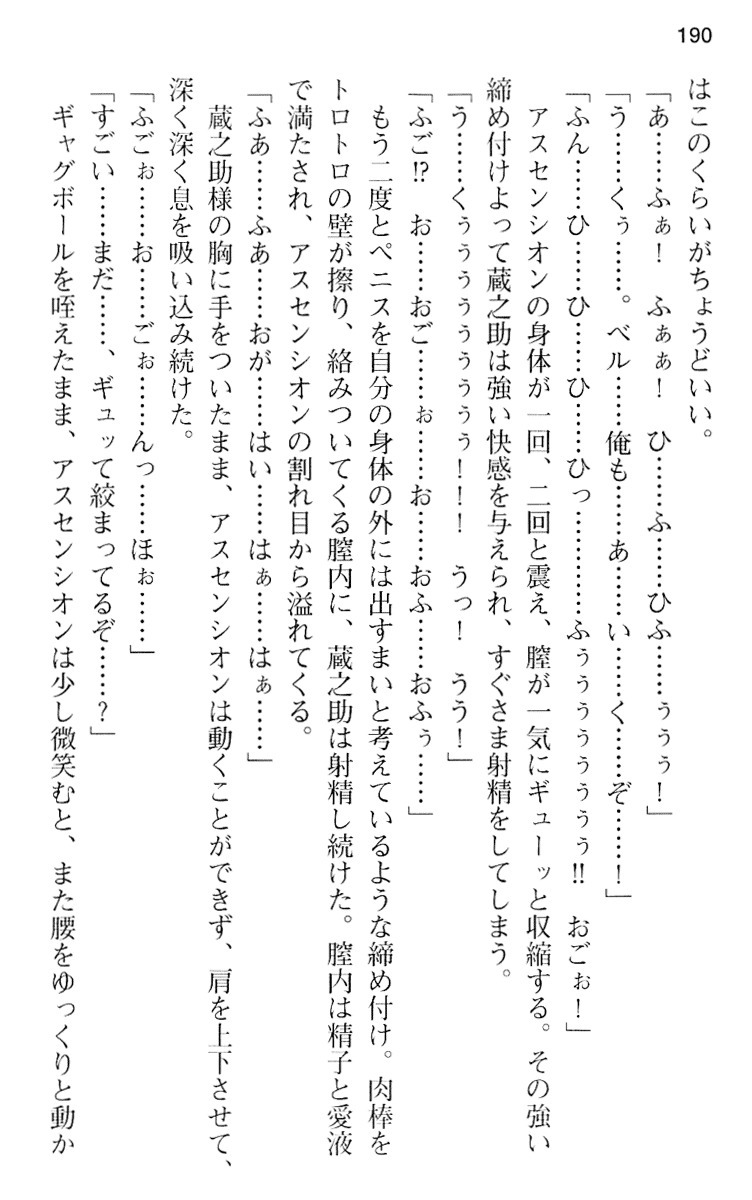 190
はこのくらいがちょうどいい。
「あ……ふぁ！　ふぁぁ！　ひ……ふ……ひふ……ぅぅぅ！」
「う……くぅ……。ベル……俺も……あ……い……く……ぞ……！」
「ふん……ひ……ひ……ひ……ひっ…………ふぅぅぅぅぅぅぅ!!　おごぉ！」
アスセンシオンの身体が一回、二回と震え、膣が一気にギューッと収縮する。その強い
締め付けよって蔵之助は強い快感を与えられ、すぐさま射精をしてしまう。
「う……くぅぅぅぅぅぅぅ！！！　うっ！　うう！」
「ふご!?　お……おご……ぉ……お……おふ……おふぅ……」
もう二度とペニスを自分の身体の外には出すまいと考えているような締め付け。肉棒を
トロトロの壁が擦り、絡みついてくる膣内に、蔵之助は射精し続けた。膣内は精子と愛液
で満たされ、アスセンシオンの割れ目から溢れてくる。
「ふあ……ふあ……おが……はい……はぁ……はぁ……」
蔵之助様の胸に手をついたまま、アスセンシオンは動くことができず、肩を上下させて、
深く深く息を吸い込み続けた。
「ふごぉ……お……ごぉ……んっ……ほぉ……」
「すごい……まだ……、ギュッて絞まってるぞ……？」
ギャグボールを咥えたまま、アスセンシオンは少し微笑むと、また腰をゆっくりと動か